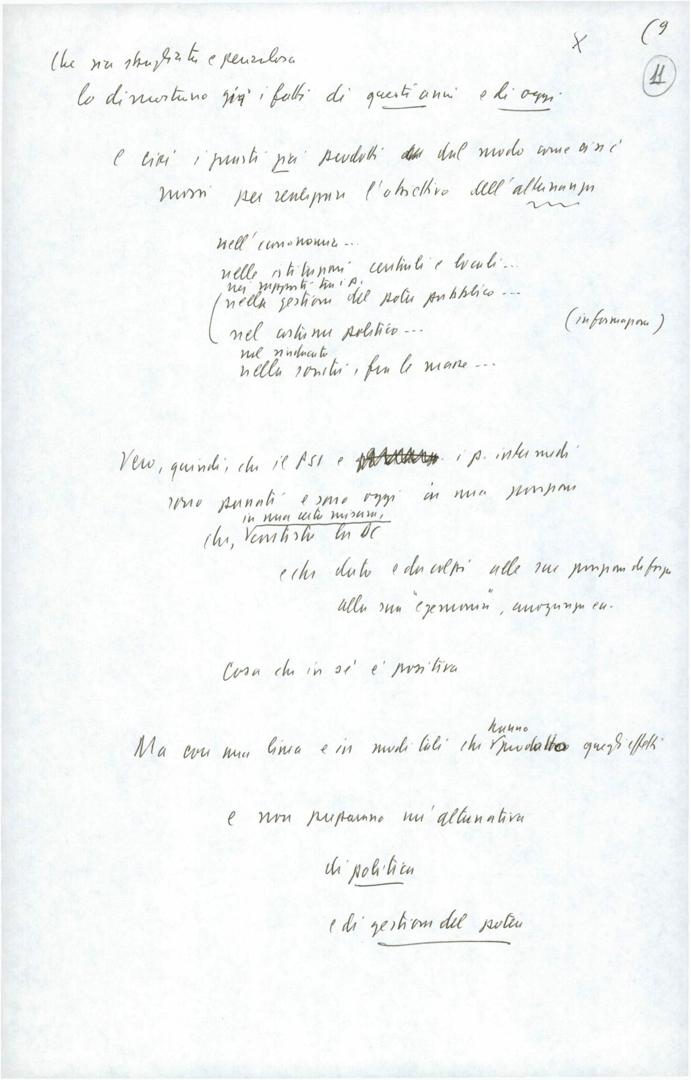 X (9
11
Che sia sbagliata e pericolosa
lo dimostrano già i fatti di questi anni e di oggi
e cioè i guasti già prodotti dal modo come ci si è
mossi per realizzare l'obiettivo dell'alternanza
nell'economia...
nelle istituzioni centrali e locali...
nei rapporti tra i p.
nella gestione del potere pubblico...
nel costume politico... (informazione)
nel sindacato
nella società, fra le masse...
Vero, quindi, che il PSI e i p. intermedi
sono passati e sono oggi in una posizione
in una certa misura,
che, contesta la DC
e che dato dei colpi alle sue posizioni di forza
alla sua "egemonia",
Cosa che in sé è positiva
hanno
Ma con una linea e in modi tali che prodotto quegli effetti
e non preparano un'alternativa
di politica
e di gestione del potere